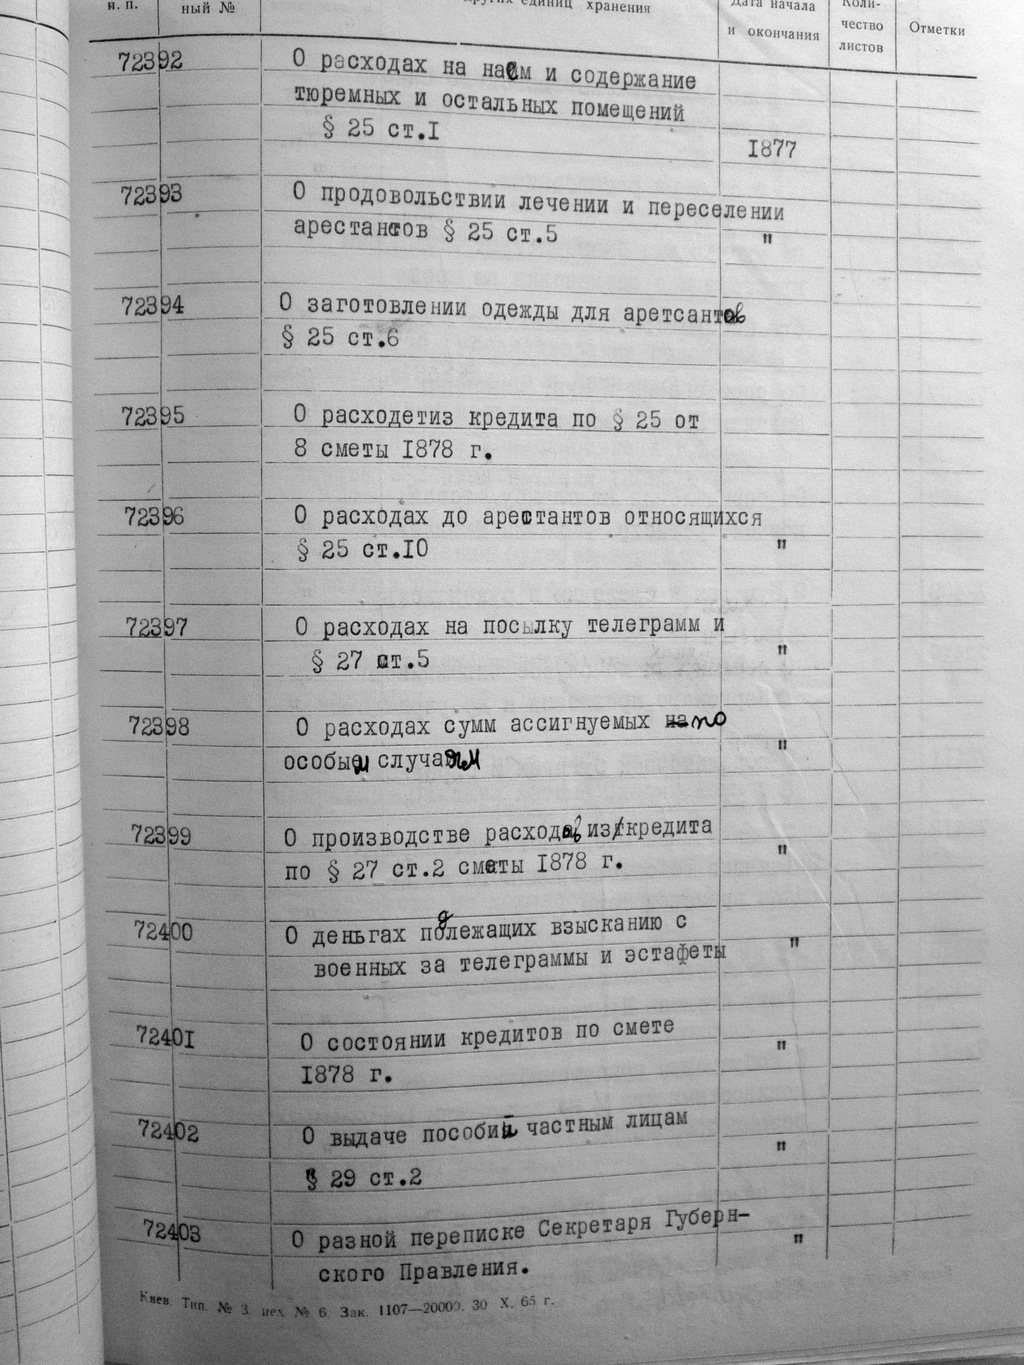 н. п.
ный №
других единиц хранения
Дата начала
и окончания
Коли-
чество
листов
Отметки
72392
О расходах на наем и содержание
тюремных и остальных помещений
§ 25 ст.I
1877
72393
О продовольствии лечении и переселении
арестантов § 25 ст.5
"
72394
О заготовлении одежды для аретсантов
§ 25 ст.6
72395
О расходетиз кредита по § 25 от
8 сметы I878 г.
72396
О расходах до арестантов относящихся
§ 25 ст.IO
"
72397
О расходах на посылку телеграмм и
§ 27 ст.5
"
72398
О расходах сумм ассигнуемых на по
особым случаям
"
72399
О производстве расходов из кредита
по § 27 ст.2 сметы I878 г.
"
72400
О деньгах подлежащих взысканию с
военных за телеграммы и эстафеты
"
7240I
О состоянии кредитов по смете
I878 г.
"
72402
О выдаче пособий частным лицам
§ 29 ст.2
"
72403
О разной переписке Секретаря Губерн-
ского Правления.
"
Киев. Тип. № 3. цех № 6. Зак. 1107—20000. 30 X. 65 г.